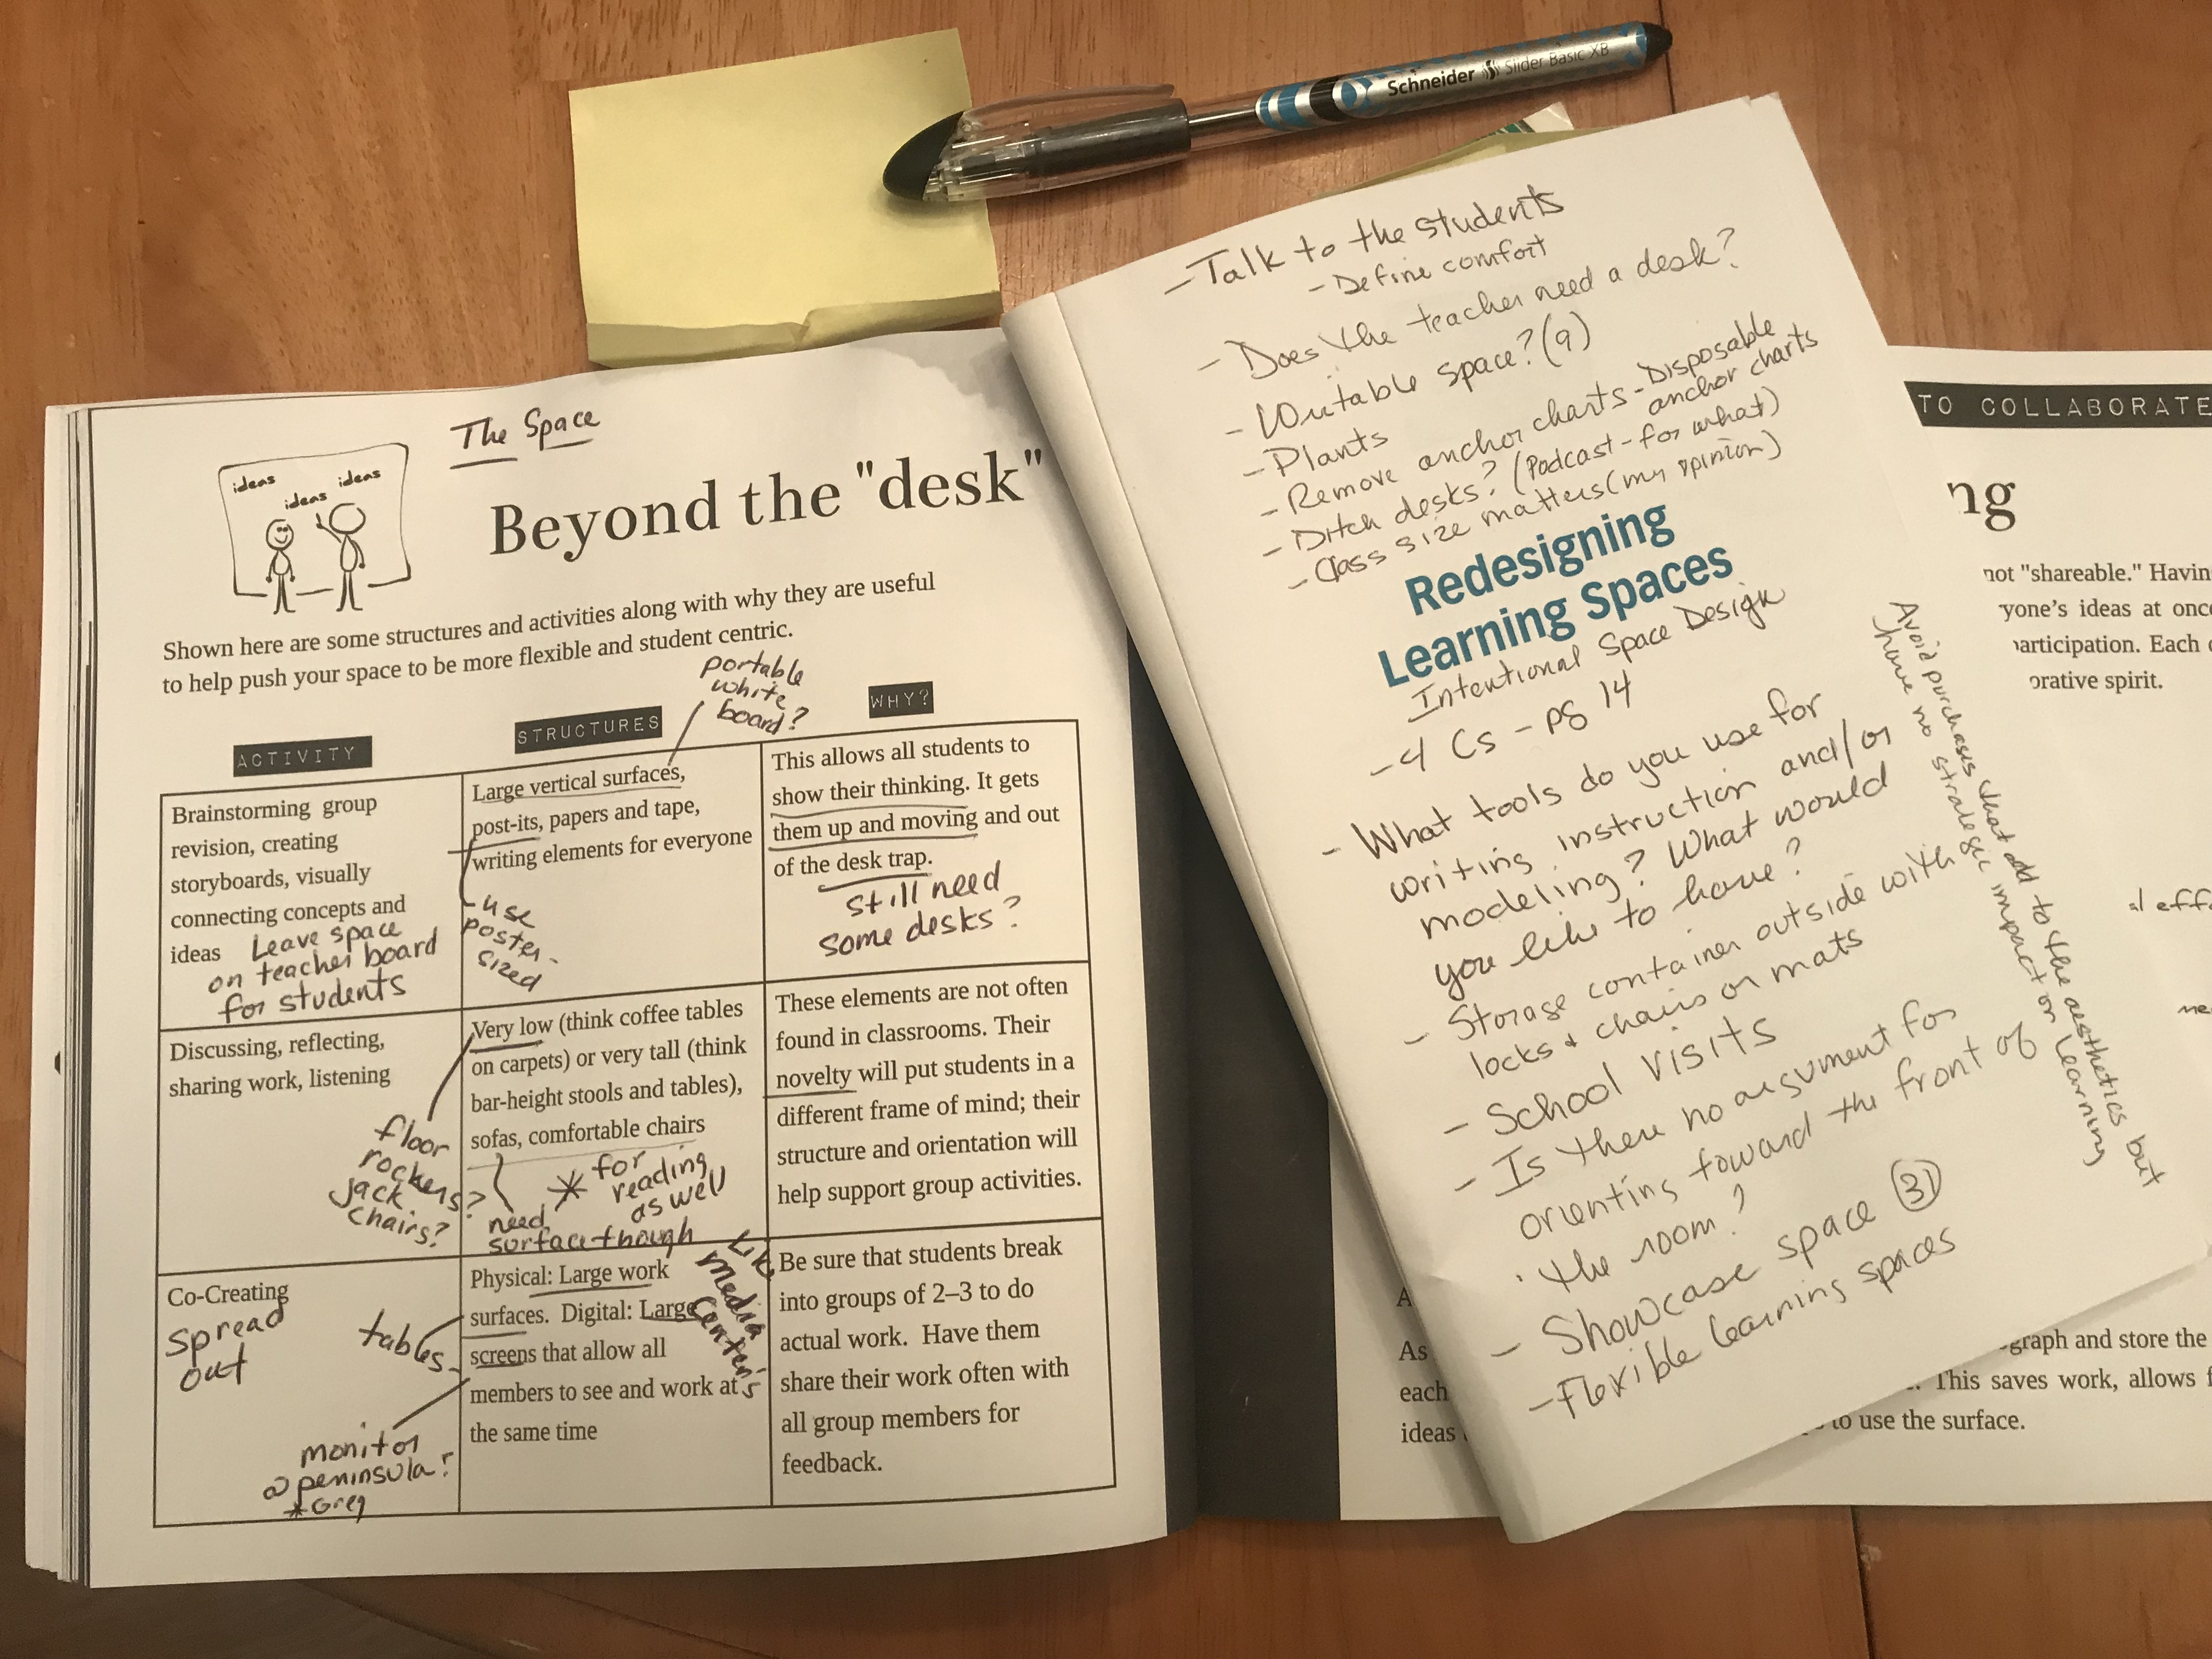 Schneider Slider Basic XB
The Space
ideas
ideas
ideas
Beyond the "desk"
Shown here are some structures and activities along with why they are useful
to help push your space to be more flexible and student centric.
portable
white
board?
ACTIVITY
STRUCTURES
WHY?
Brainstorming group
revision, creating
storyboards, visually
connecting concepts and
ideas
Leave space
on teacher board
for students
Large vertical surfaces,
post-its, papers and tape,
writing elements for everyone
use
poster-
sized
This allows all students to
show their thinking. It gets
them up and moving and out
of the desk trap.
still need
some desks?
Discussing, reflecting,
sharing work, listening
floor
rockers?
Jack
chairs?
Very low (think coffee tables
on carpets) or very tall (think
bar-height stools and tables),
sofas, comfortable chairs
* for
reading
as well
need
surface though
These elements are not often
found in classrooms. Their
novelty will put students in a
different frame of mind; their
structure and orientation will
help support group activities.
Co-Creating
Spread
out
tables
monitor
@ peninsula?
*Greg
Physical: Large work
surfaces. Digital: Large
screens that allow all
members to see and work at
the same time
Like
Media
Center's
Be sure that students break
into groups of 2–3 to do
actual work. Have them
share their work often with
all group members for
feedback.
- Talk to the students
- Define comfort
- Does the teacher need a desk?
- Writable space? (9)
- Plants
- Remove anchor charts - Disposable
anchor charts
- Ditch desks? (Podcast - for what)
- Class size matters (my opinion)
Redesigning
Learning Spaces
Intentional Space Design
- 4 Cs - pg 14
- What tools do you use for
writing instruction and/or
modeling? What would
you like to have?
- Storage container outside with
locks + chairs or mats
- School visits
- Is there no argument for
orienting toward the front of
the room?
- Showcase space (31)
- Flexible learning spaces
Avoid purchases that add to the aesthetics but
have no strategic impact on learning
TO COLLABORATE
ng
not "shareable." Havin
yone's ideas at onc
articipation. Each
orative spirit.
l eff
me
A
As
each
ideas
graph and store the
This saves work, allows f
to use the surface.